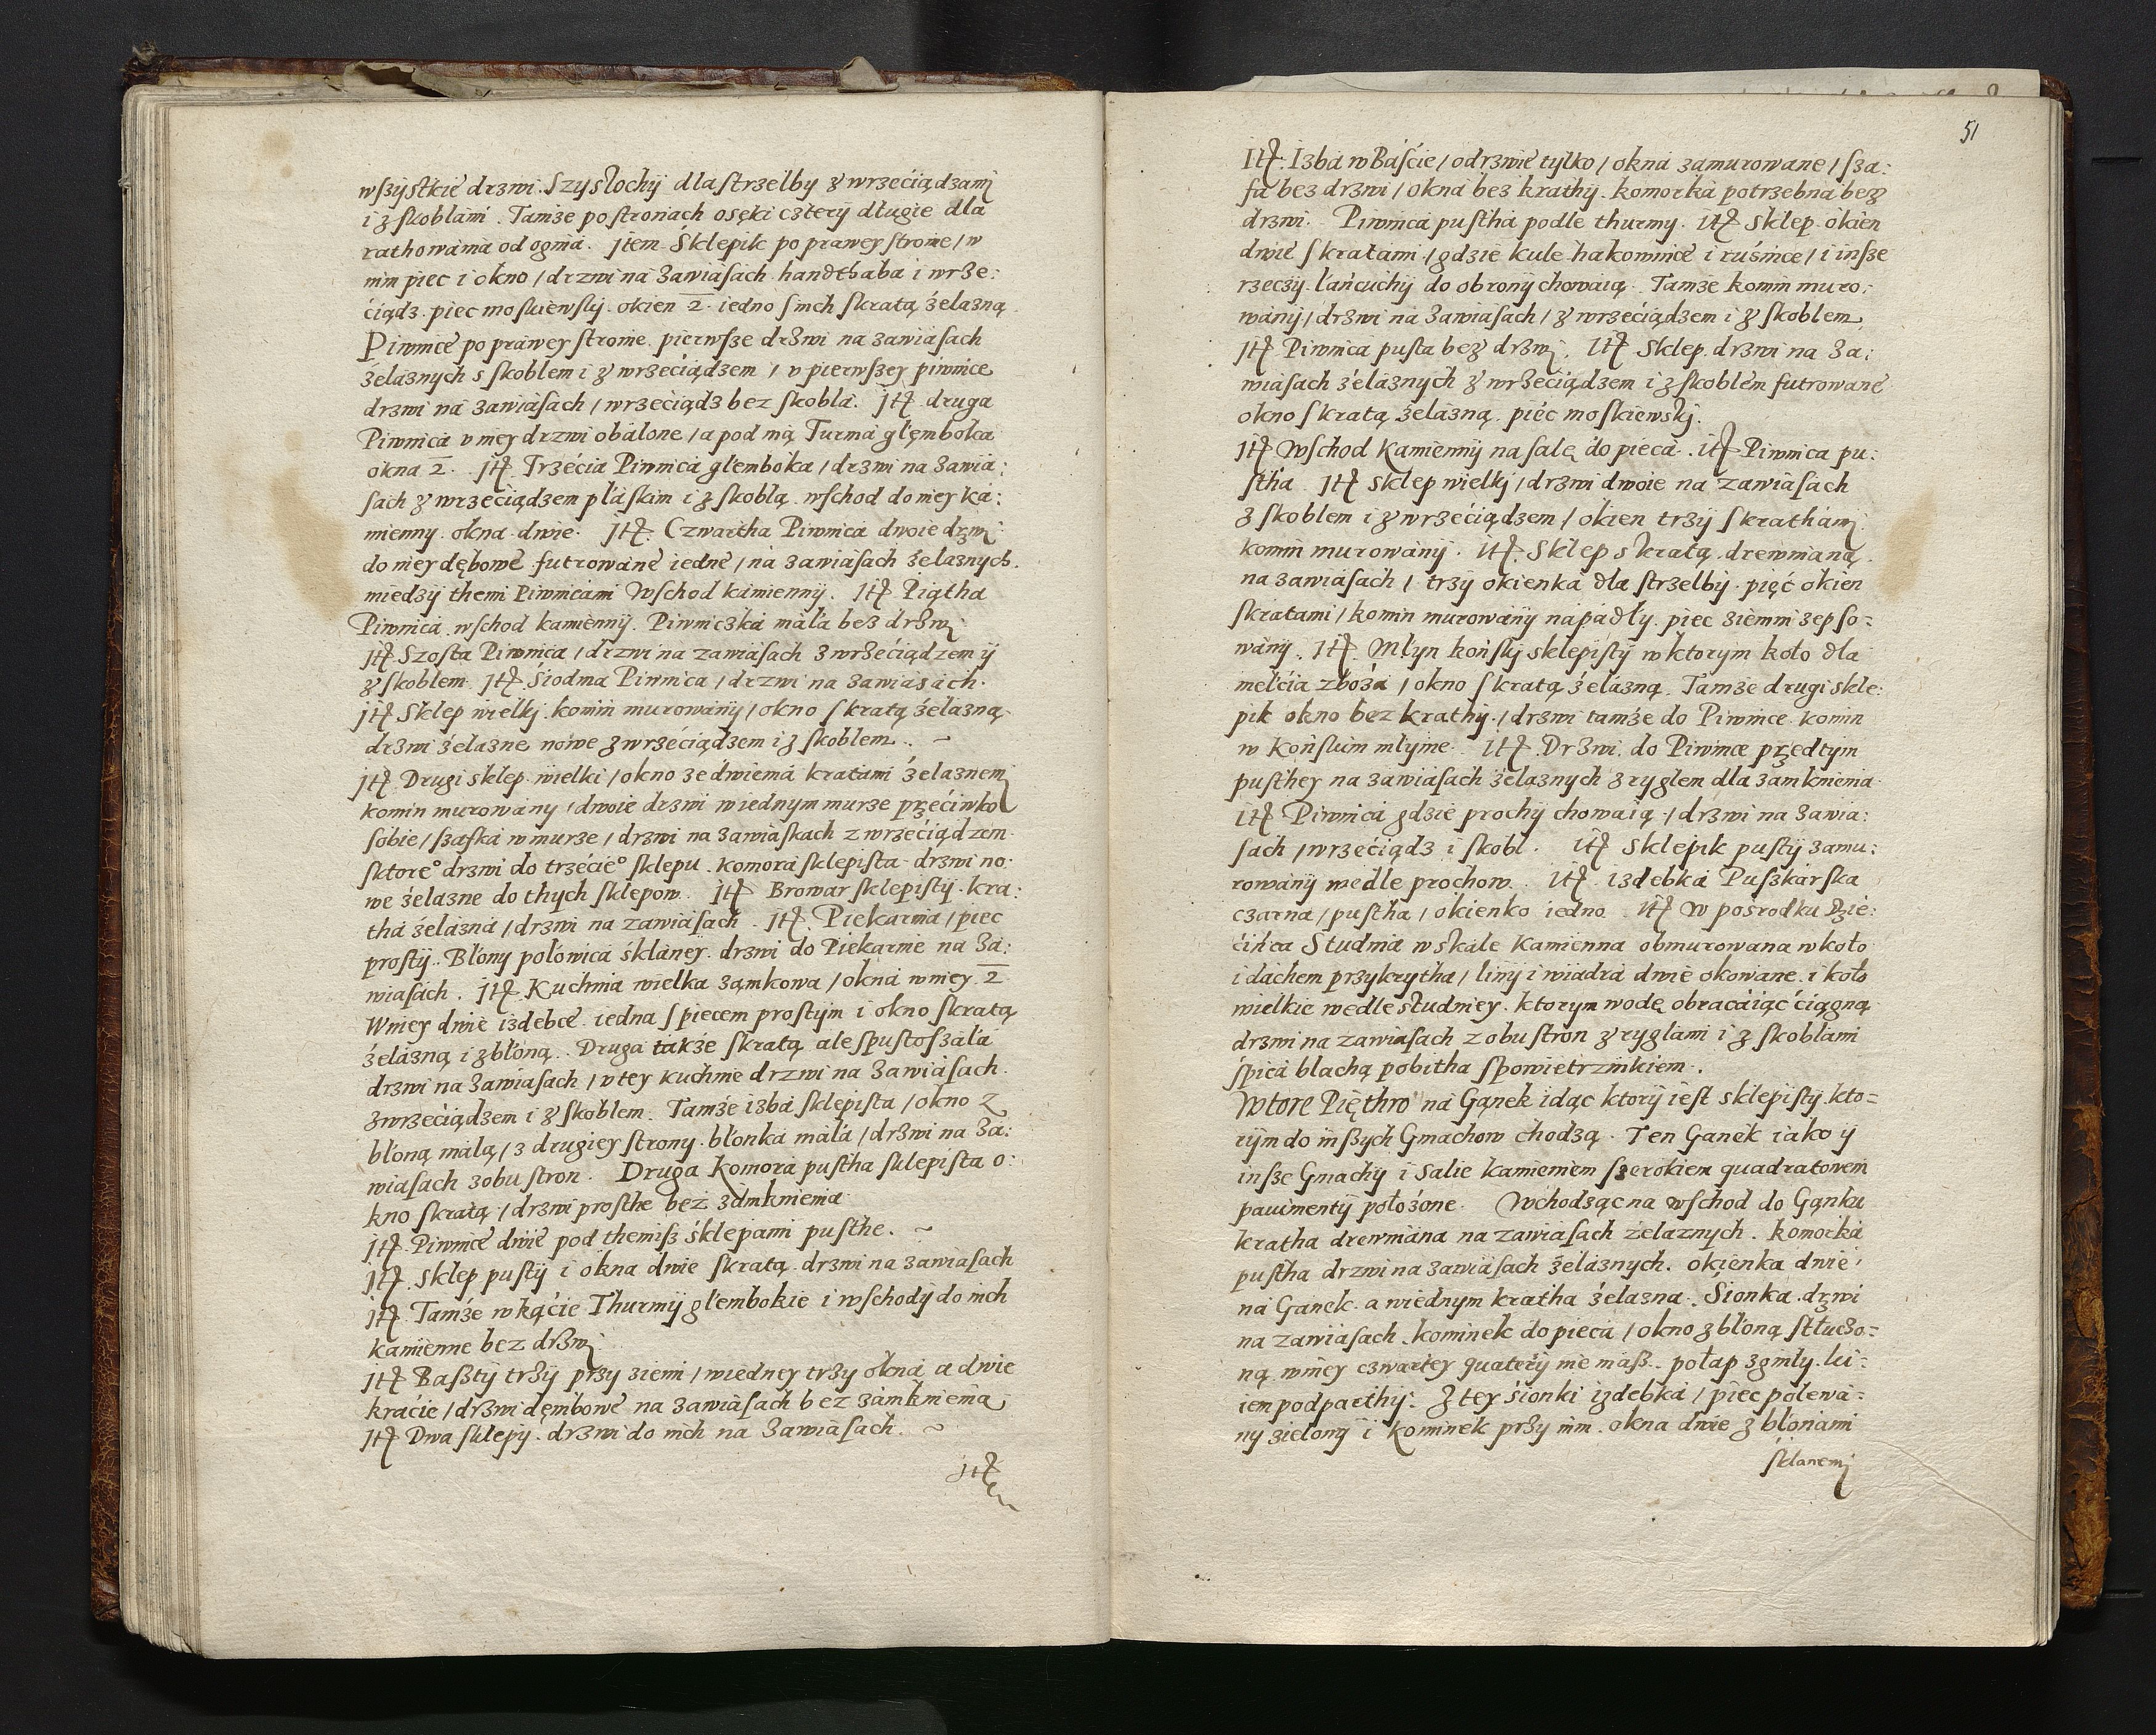 wſzystkie drzwi. Szysłochÿ dla strzelby z wrzeciądzami
i z skoblami. Tamże po stronach osęki czterÿ długie dla
rathowania od ognia. Item Sklepik po prawey stronie / w
nim piec i okno / drzwi na zawiasach handtbaba i wrze:
ciądz. piec moskiewsky. okien 2. iedno s nich s kratą żelazną.
Piwnice po prawey stronie. pierwsze drzwi na zawiasach
żelaznych s skoblem i z wrzeciądzem / v pierwszey piwnice
drzwi na zawiasach / wrzeciądz bez skobla. Itẽ druga
Piwnica v niey drzwi obalone / a pod nią Turma głęmboka
okna 2. Itẽ Trzecia Piwnica głemboka / drzwi na zawia:
sach z wrzeciądzem płaskim i z skoblą. wschod do niey ka:
mienny. okna dwie. Itẽ. Czwartha Piwnica dwoie drzwi
do niey dębowe futrowane iedne / na zawiasach żelaznych.
miedzÿ themi Piwnicami Wschod kamiennÿ. Itẽ Piątha
Piwnica. wschod kamiennÿ. Piwniczka mała bez drzwi
Itẽ Szosta Piwnica / drzwi na zawiasach z wrzeciądzem ÿ
z skoblem. Itẽ Siodma Piwnica / drzwi na zawiasach.
Itẽ Sklep wielki. komin murowanÿ / okno s kratą żelazną.
drzwi żelazne nowe z wrzeciądzem i z skoblem. ~
Itẽ Drugi sklep wielki / okno ze dwiema kratami żelaznemi
komin murowany / dwoie drzwi w iednym murze przeciwko
sobie / szafka w murze / drzwi na zawiaskach z wrzeciądzem.
s ktore° drzwi do trzecie° sklepu. komora sklepista. drzwi no:
we żelazne do thych sklepow. Itẽ Browar sklepistÿ. kra:
tha żelazna / drzwi na zawiasach. Itẽ Piekarnia / piec
prostÿ. Błony połowica śklaney. drzwi do Piekarnie na za:
wiasach. Itẽ Kuchnia wielka zamkowa / okna w niey 2
W niey dwie izdebce. iedna s piecem prostÿm i okno s kratą
żelazną i z błoną. Druga także s kratą ale spustoszała
drzwi na zawiasach / v tey kuchnie drzwi na zawiasach
z wrzeciądzem i z skoblem. Tamże izba sklepista / okno z
błoną małą / z drugiey strony. błonka mała / drzwi na za:
wiasach z obu stron. Druga komora pustha sklepista o:
kno s kratą / drzwi prosthe bez zamknienia
Itẽ Piwnice dwie pod themisz sklepami pusthe. ~
Itẽ. sklep pustÿ i okna dwie s kratą. drzwi na zawiasach
Itẽ Tamże w kącie Thurmÿ głembokie i wschodÿ do nich
kamienne bez drzwi
Itẽ Basztÿ trzÿ przy ziemi / w iedney trzy okna a dwie
kracie / drzwi dęmbowe na zawiasach bez zamknienia
Itẽ Dwa sklepy. drzwi do nich na zawiasach. ~
Itẽ
51
Itẽ. Izba w Baście / odrzwie tylko / okna zamurowane / sza:
fa bez drzwi / okna bez krathÿ. komorka potrzebna bez
drzwi. Piwnica pustha podle thurmy. Itẽ Sklep. okien
dwie s kratami / gdzie kule hakownice i rusnice / i insze
rzeczÿ. łańcuchÿ do obronÿ chowaią. Tamże komin muro:
wanÿ / drzwi na zawiasach / z wrzeciądzem i z skoblem
Itẽ Piwnica pusta bez drzwi. Itẽ Sklep. drzwi na za:
wiasach żelaznych z wrzeciądzem i z skoblem futrowane
okno s kratą żelazną. piec moskiewskj.
Itẽ Wschod kamiennÿ na salę do pieca. Itẽ Piwnica pu:
stha. Itẽ sklep wielkj / drzwi dwoie na zawiasach
z skoblem i z wrzeciądzem / okien trzÿ s krathami
komin murowanÿ. Itẽ. Sklep s kratą drewnianą.
na zawiasach / trzÿ okienka dla strzelbÿ. pięć okien
s kratami / komin murowany napadłÿ. piec ziemni zepso=
wanÿ. Itẽ. Młyn końskj sklepistÿ w ktorym koło dla
melcia zboża / okno s kratą żelazną. Tamże drugi skle:
pik okno bez krathÿ / drzwi tamże do Piwnice. komin
w końskim młynie. Itẽ. Drzwi do Piwnice przedtÿm
pusthey na zawiasach żelaznych z ryglem dla zamknienia
Itẽ Piwnica gdzie prochÿ chowaią / drzwi na zawia:
sach / wrzeciądz i skobl. Itẽ Sklepik pustÿ zamu:
rowanÿ wedle prochow. Itẽ. Izdebka Puszkarska
czarna / pustha / okienko iedno. Itẽ W posrodku Dzie:
cińca Studnia w skale kamienna obmurowana w koło
i dachem przykrytha / linÿ i wiadra dwie okowane. i koło
wielkie wedle studniey. ktorym wodę obracaiąc ciągną
drzwi na zawiasach z obu stron z ryglami i z skoblami
śpica blachą pobitha s powietrznikiem.
Wtore Pięthro na Gąnek idąc ktorÿ iest sklepisty. kto=
rÿm do inszych Gmachow chodzą. Ten Ganek iako ÿ
insze Gmachÿ i Salie kamieniem szerokiem quadratowem
pauimentÿ położone. Wchodząc na wschod do Gąnku
kratha drewniana na zawiasach żelaznych. komorka
pustha drzwi na zawiasach żelaznych. okienka dwie
na Ganek. a w iednym kratha żelazna. Sionka. drzwi
na zawiasach. kominek do pieca / okno z błoną stłuczo=
ną. w niey czwartey quaterÿ nie masz. połap zgniły. ki:
iem podparthÿ: Z tey sionki izdebka / piec polewa=
ny zielony i kominek przy nim. okna dwie z błonami
śklanemi